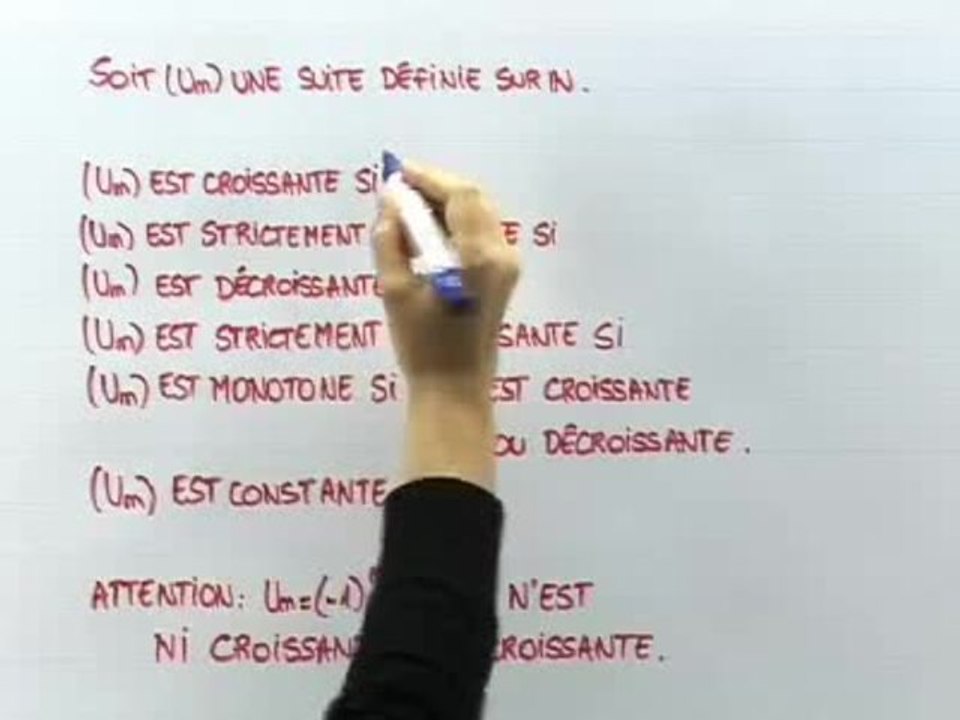 SOIT (Un) UNE SUITE DÉFINIE SUR ℕ.
(Un) EST CROISSANTE SI
(Un) EST STRICTEMENT SI
(Un) EST DÉCROISSANTE
(Un) EST STRICTEMENT SI
(Un) EST MONOTONE SI EST CROISSANTE
OU DÉCROISSANTE.
(Un) EST CONSTANTE
ATTENTION: Un=(-1) N'EST
NI